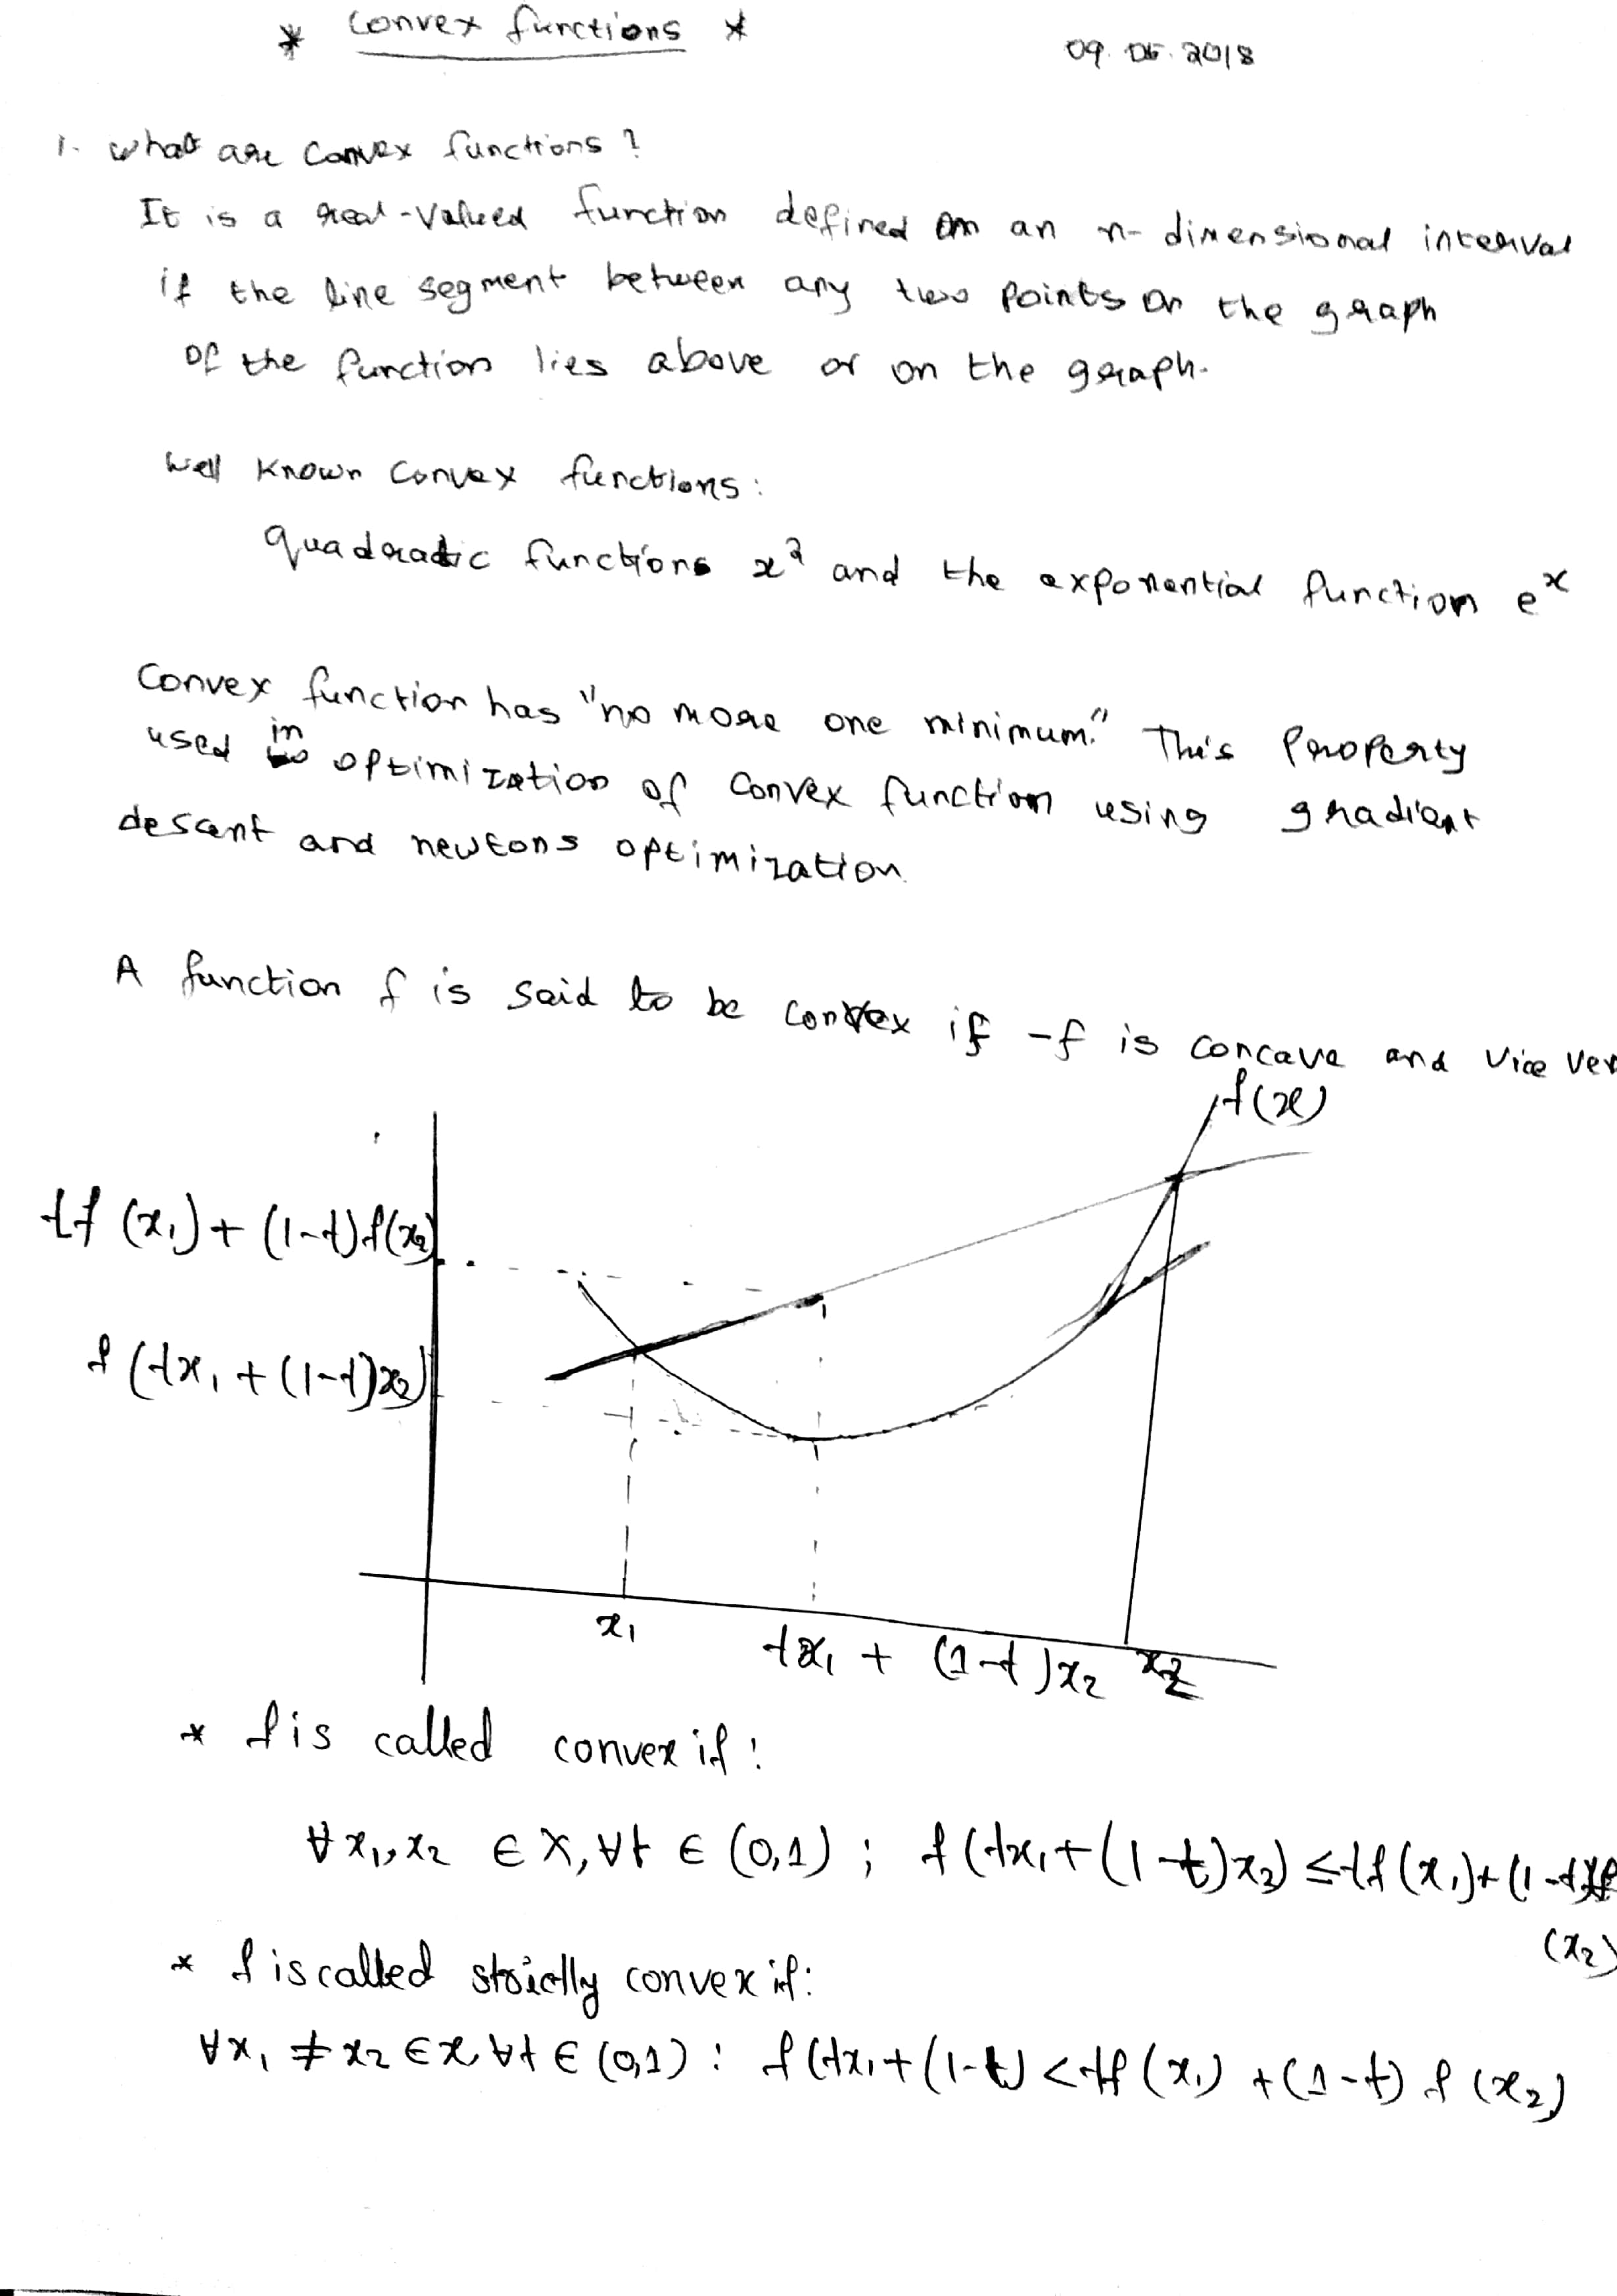 * convex functions *
09.05.2018
1. what are convex functions?
It is a real-valued function defined on an n-dimensional interval
if the line segment between any two points on the graph
of the function lies above or on the graph.
Well known convex functions:
quadratic functions x² and the exponential function eˣ
Convex function has "no more one minimum." This property
used in optimization of convex function using gradient
descent and newtons optimization.
A function f is said to be convex if -f is concave and vice ver
f(x)
tf(x₁) + (1-t)f(x₂)
f(tx₁ + (1-t)x₂)
x₁
tx₁ + (1-t)x₂
x₂
* f is called convex if:
∀x₁, x₂ ∈ X, ∀t ∈ (0,1) ; f(tx₁ + (1-t)x₂) ≤ tf(x₁) + (1-t)f
(x₂)
* f is called strictly convex if:
∀x₁ ≠ x₂ ∈ x, ∀t ∈ (0,1) : f(tx₁ + (1-t) < tf(x₁) + (1-t) f(x₂)